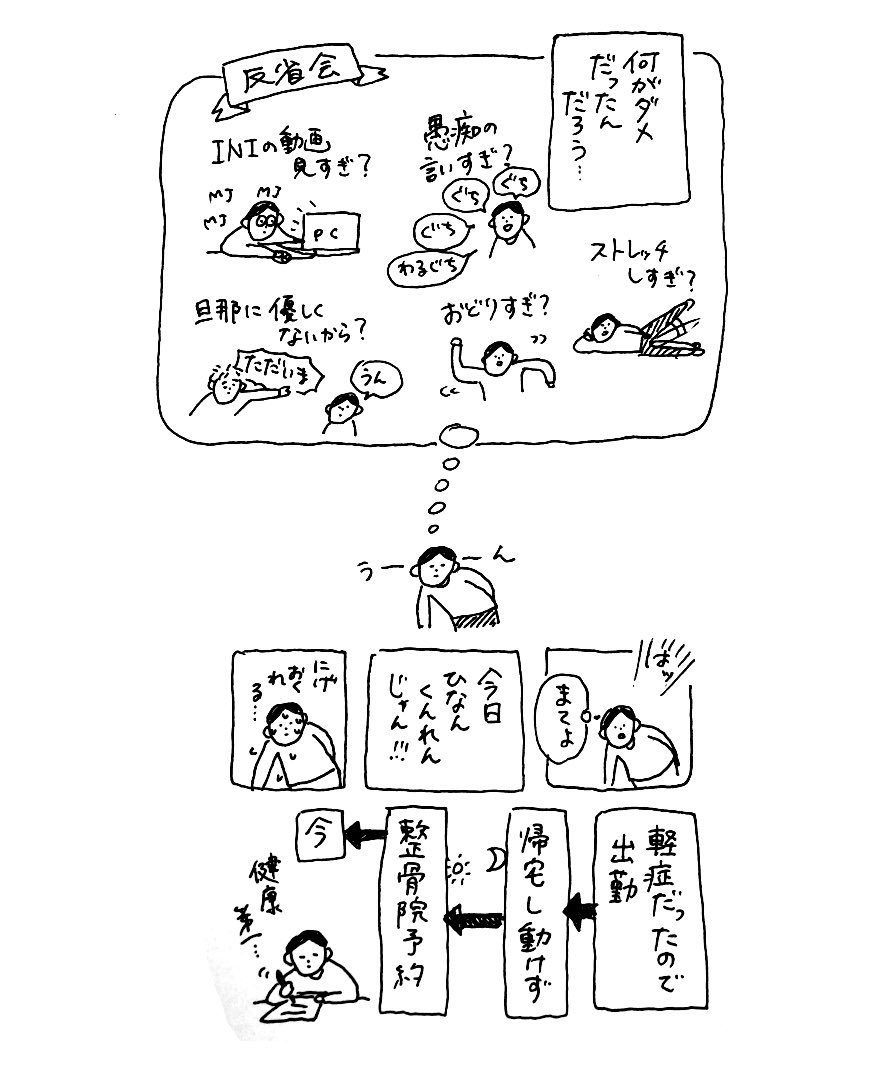 何がダメ
だったん
だろう…
反省会
愚痴の
言いすぎ?
ぐち
ぐち
ぐち
わるぐち
INIの動画
見すぎ?
MJ
MJ
MJ
PC
ストレッチ
しすぎ?
おどりすぎ?
旦那に優しく
ないから?
ただいま
うん
うーーん
ばッ
まてよ
今日
ひなん
くんれん
じゃん!!!
にげ
おく
れ
る…
軽症だったので
出勤
帰宅し動けず
整骨院予約
今
健康
第一…